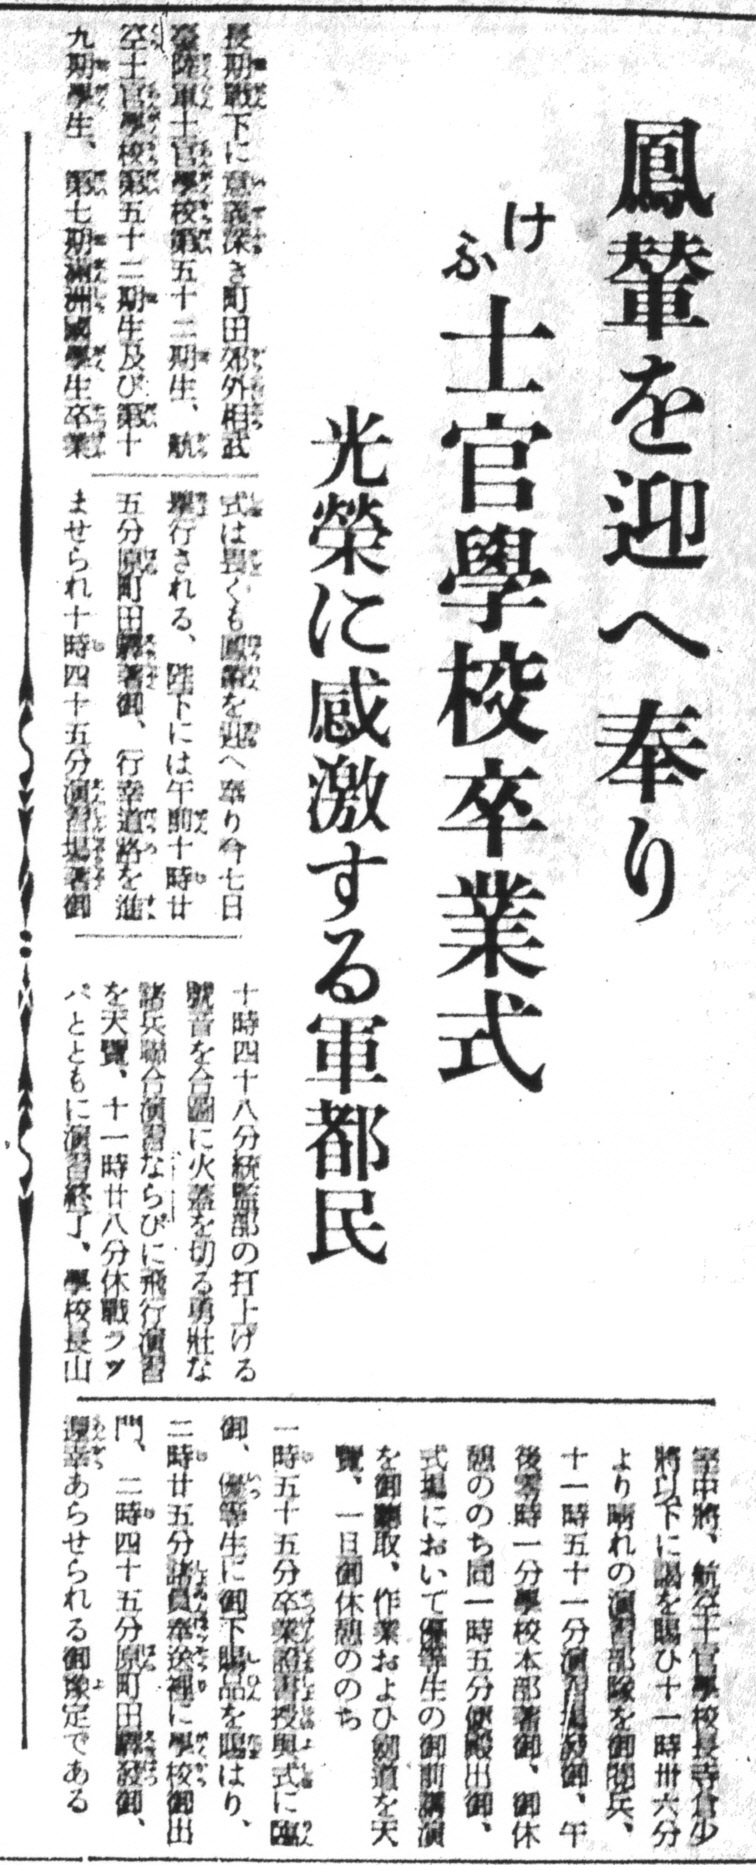 鳳輦を迎へ奉り
けふ
士官學校卒業式
光榮に感激する軍都民
長期戰下に意義深き町田郊外相武
臺陸軍士官學校第五十二期生、航
空士官學校第五十二期生及び第十
九期學生、第七期滿洲國學生卒業
式は畏くも鳳輦を迎へ奉り今七日
擧行される、陛下には午前十時廿
五分原町田驛著御、行幸道路を進
ませられ十時四十五分演習場著御
十時四十八分統監部の打上げる
號音を合圖に火蓋を切る勇壯な
諸兵聯合演習ならびに飛行演習
を天覽、十一時廿八分休戰ラツ
パとともに演習終了、學校長山
室中將、航空士官學校長寺倉少
將以下に謁を賜ひ十一時卅六分
より晴れの演習部隊を御閲兵、
十一時五十一分演習場發御、午
後零時一分學校本部著御、御休
憩ののち同一時五分便殿出御、
式場において優等生の御前講演
を御聽取、作業および劍道を天
覽、一旦御休憩ののち
一時五十五分卒業證書授與式に臨
御、優等生に御下賜品を賜はり、
二時廿五分諸員奉送裡に學校御出
門、二時四十五分原町田驛發御、
還幸あらせられる御豫定である